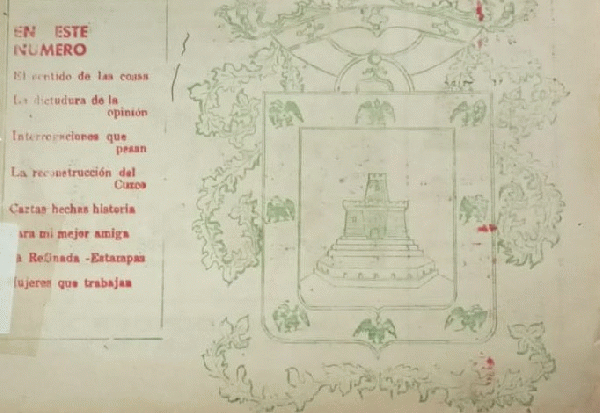 EN ESTE
NUMERO
El sentido de las cosas
La dictadura de la
opinión
Interrogaciones que
pesan
La reconstrucción del
Cuzco
Cartas hechas historia
ara mi mejor amiga
a Refinada -Estampas
ujeres que trabajan